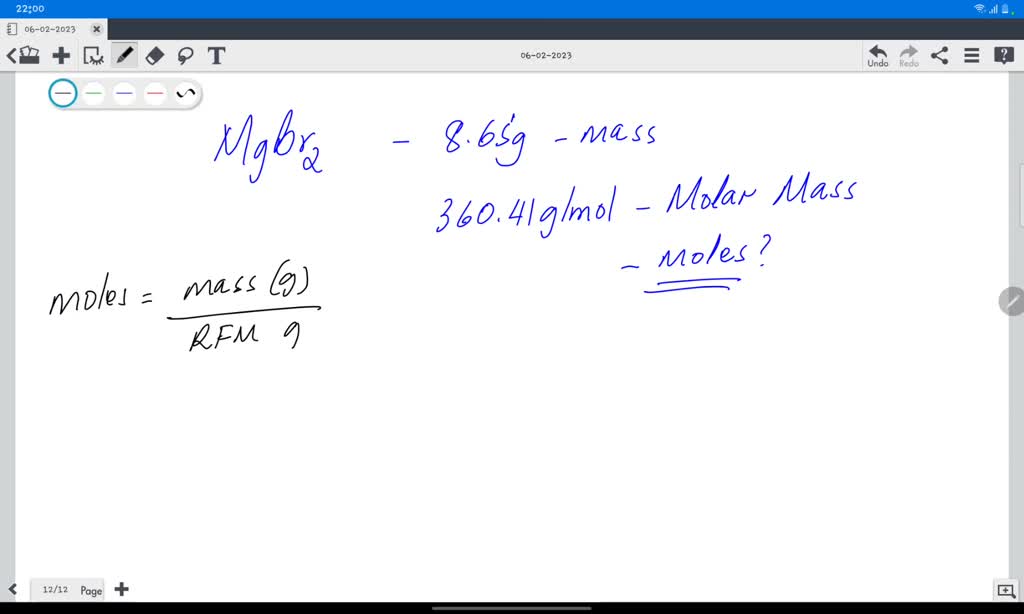 22:00
06-02-2023
T
06-02-2023
Undo
Redo
?
MgBr2 - 8.65g - mass
360.41g/mol - Molar Mass
- moles?
moles = mass (g)
RFM g
12/12 Page